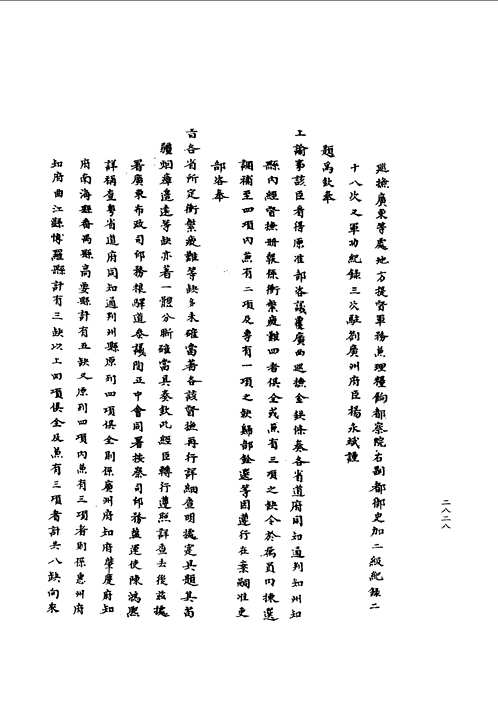 巡撫廣東等處地方提督軍務兼理糧餉都察院右副都御史加二級紀錄二
十八次又軍功紀錄三次駐劄廣州府臣楊永斌謹
題為欽奉
上諭事該臣看得原准部咨議覆廣西巡撫金鉷條奏各省道府同知通判知州知
縣內經督撫册報係衝繁疲難四者俱全或兼有三項之缺令於屬員內揀選
調補至四項內兼有二項及專有一項之缺歸部銓選等因遵行在案嗣准吏
部咨奉
旨各省所定衝繁疲難等缺多未確當著各該督撫再行詳細查明據定具題其苗
疆烟瘴邊遠等缺亦著一體分晰確當具奏欽此經臣轉行遵照詳查去後茲據
署廣東布政司印務糧驛道參議陶正中會同署按察司印務鹽運使陳鴻熙
詳稱查粵省道府同知通判州縣原列四項俱全則係廣州府知府肇慶府知
府南海縣番禺縣高要縣計有五缺又原列四項內兼有三項者則係惠州府
知府曲江縣博羅縣計有三缺以上四項俱全及兼有三項者計共八缺向來
二八二八